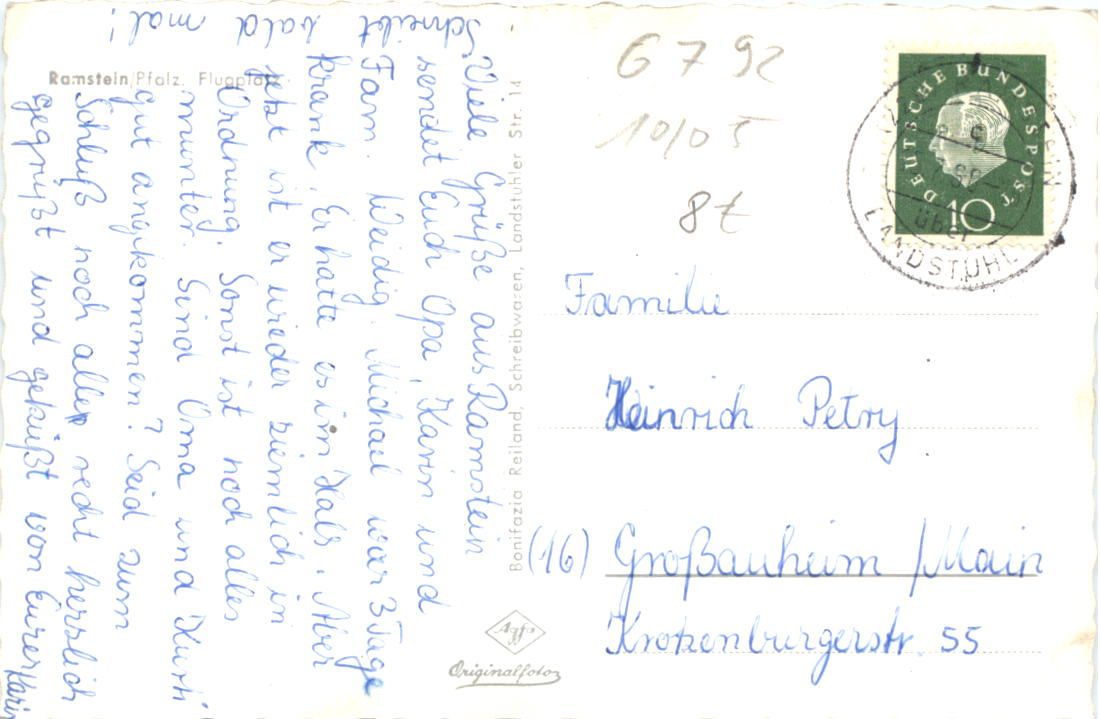 Ramstein/Pfalz. Flugplatz
Viele Grüße aus Ramstein
sendet Euch Opa, Karin und
Fam. Weidig. Michael war 3 Tage
krank. Er hatte es im Hals. Aber
jetzt ist er wieder ziemlich in
Ordnung. Sonst ist noch alles
munter. Sind Oma und Kurti
gut angekommen? Seid zum
Schluß noch alle recht herzlich
gegrüßt und geküßt von Eurer Karin
Schreibt bald mal!
Bonifazia Reiland, Schreibwaren, Landstuhler Str. 14
Agfa
Originalfoto
6792
10/05
8
DEUTSCHE BUNDESPOST
10
über
LANDSTUHL
Familie
Heinrich Petry
(16) Großauheim/Main
Krotzenburgerstr. 55